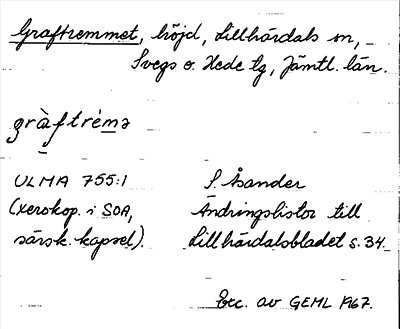 Graftremmet, höjd, Lillhärdals sn,
Svegs o. Hede tg, Jämtl. län.
gràftrém̀ə
ULMA 755:1 S. Åsander
(xerokop. i SOA, Ändringslistor till
särsk. kapsel). Lillhärdalsbladet s. 34.
Exc. av GEML 1967.